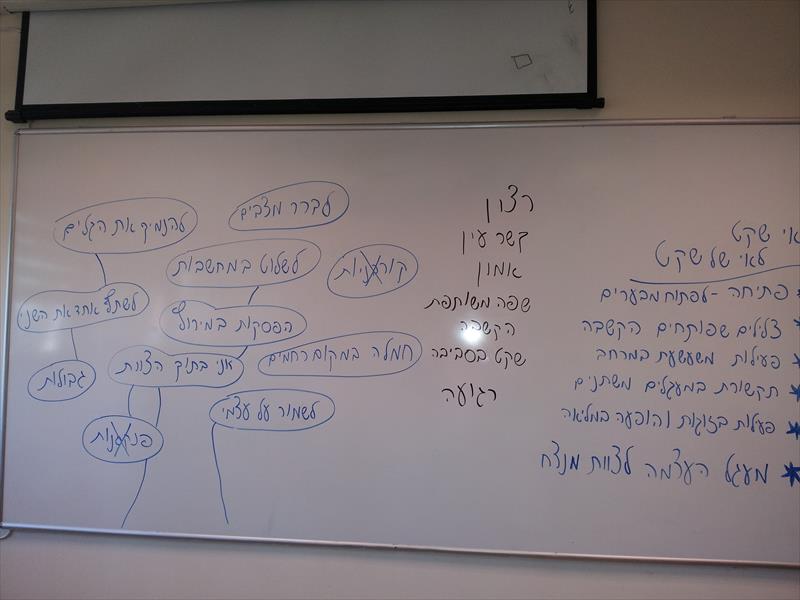 אי שקט
לאי של שקט
פתיחה - לפתוח מבערים
צלילים שפותחים הקשבה
פעילות משעשעת במרחב
תקשורת במעגלים משתנים
פעילות בזוגות והופעה במליאה
מעגל העצמה לצוות מנצח
רצון
קשר עין
אמון
שפה משותפת
הקשבה
שקט בסביבה
רגועה
לברר מצבים
להנמיק את הגלים
לשלוט במחשבות
קורבניות
לשתף אחד את השני
הפסקות במירוץ
חמלה במקום רחמים
אני בתוך הצוות
גבולות
לשמור על עצמי